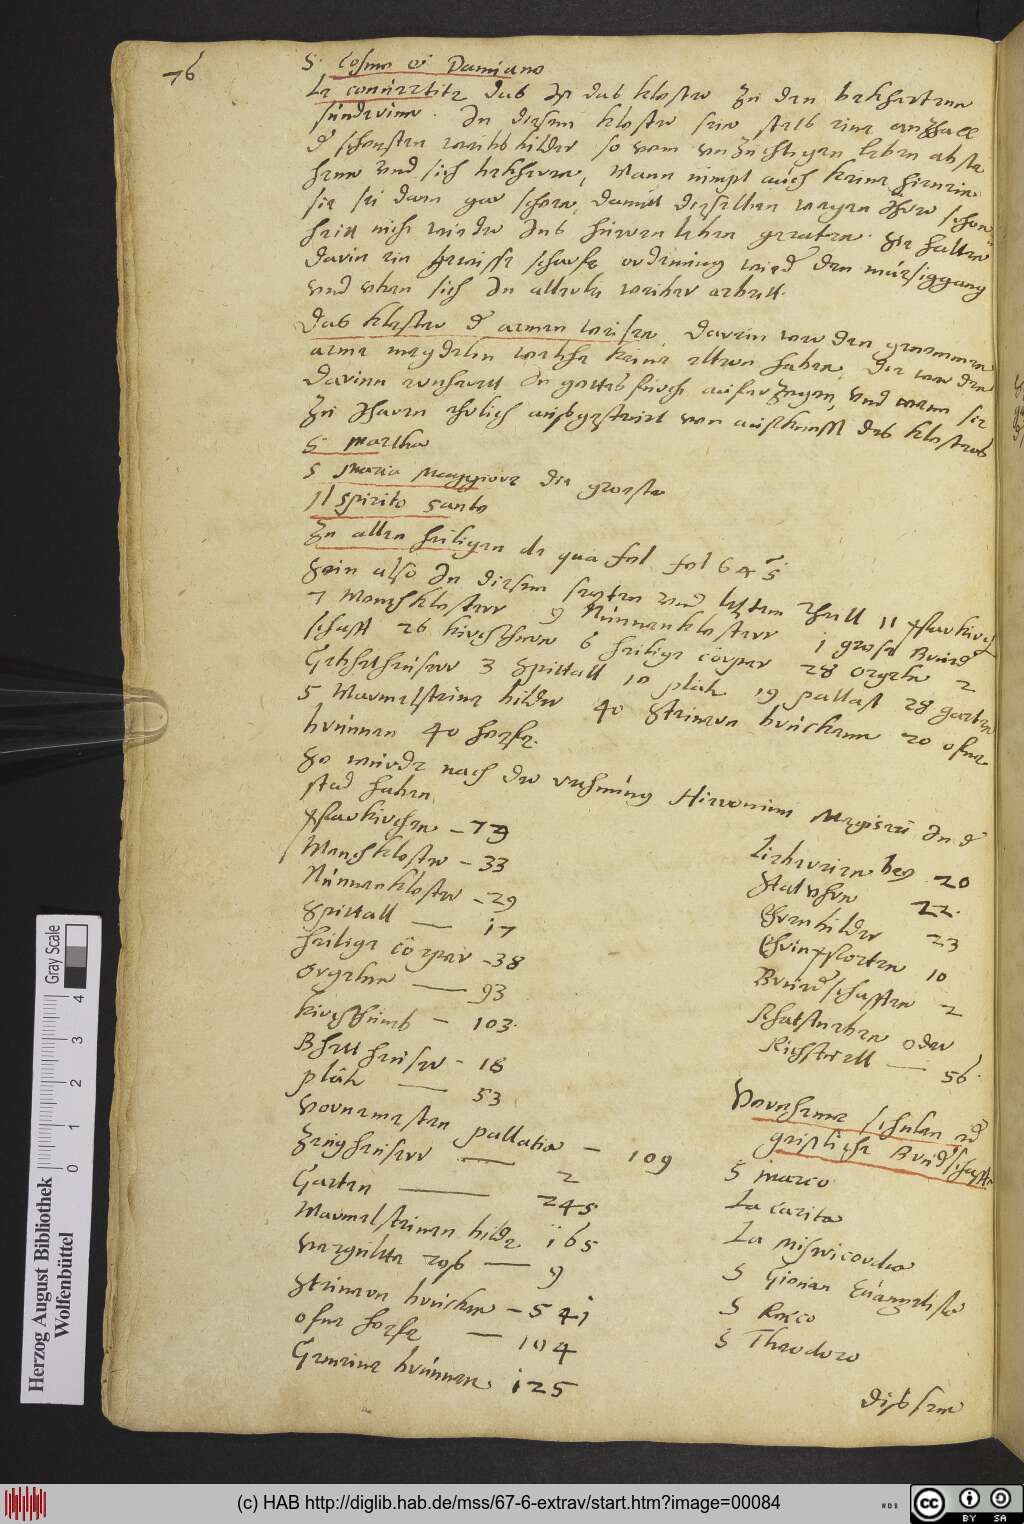 76
S. Cosmo et Damiano
Le conuertite das Ist das kloster Zu den bekherten
sünderinne. In disem kloster sein stets eine anzall
d schonsten weibs bilder so vom vnZuchtigen leben abste
henn vnd sich bekheren, Mann nimpt auch keine hienein
sie sei dann gar schenn, damitt derselben wegen Ihrer schen
heitt nicht wieder Ins huren leben geraten. Sie halten
darin ein gewisse scharfe ordenung wied den müesiggang
vnd vben sich In allerlei weiber arbeitt.
Das kloster d armen weisen darein werden genommen
arme megdelin welche keine eltern haben, die werden
darinn ernhertt In gottes furcht auferZogen, vnd wenn sie
Zu Iharen ehrlich ausgesteüret von auskunfft des klosters
S. Martha
S Maria Maggiore die groeste
Il spirito santo
Zu allen heiligen de qua fol. fol 645
Sein also In diesem sexten vnd letzten theill 11 pfarkirch
7 Monchkloster 9 Nünnenkloster 1 grose Bruder
schafft 26 kirchthurn 6 heilige cörper 28 orgeln 2
Bethcheuser 3 Spittall 10 plätz 19 pallast 28 garten
5 Marmelsteine bilder 40 Steinern brücken 20 ofne
brunnen 40 hoefe.
So würde nach der rechnüng Hieronimi Megiseri In d
stad haben
Pfarkirchen – 73
Monchkloster – 33
Nünnenkloster – 29
Spittall — 17
heilige cörper – 38
Orgelnn — 93
kirchthürn – 103.
Betheuser – 18
plätz — 53
Vornemesten pallatia — 109
Zeugheuser — 2
Garten — 245
Marmelsteinen bilder 165
vergülte rosß — 9
Steinern brücken – 541
ofne hoefe — 104
Gemeine brunnen. 125
Liebereien bey 20
Stat vhrn 22.
Ehrenbilder 23
Ehrinpforten 10
Bruderschafften 2
Schatstuben oder
Richstüell — 56.
Vornheme schulen vd
geistliche Brudschafft
S Marco
La carita
La misericordia
S Giouan Euangelista
S Rocco
S Theodoro
Diss sein
Gray Scale
4
3
2
1
0
Herzog August Bibliothek
Wolfenbüttel
(c) HAB http://diglib.hab.de/mss/67-6-extrav/start.htm?image=00084
WDB
cc
BY SA